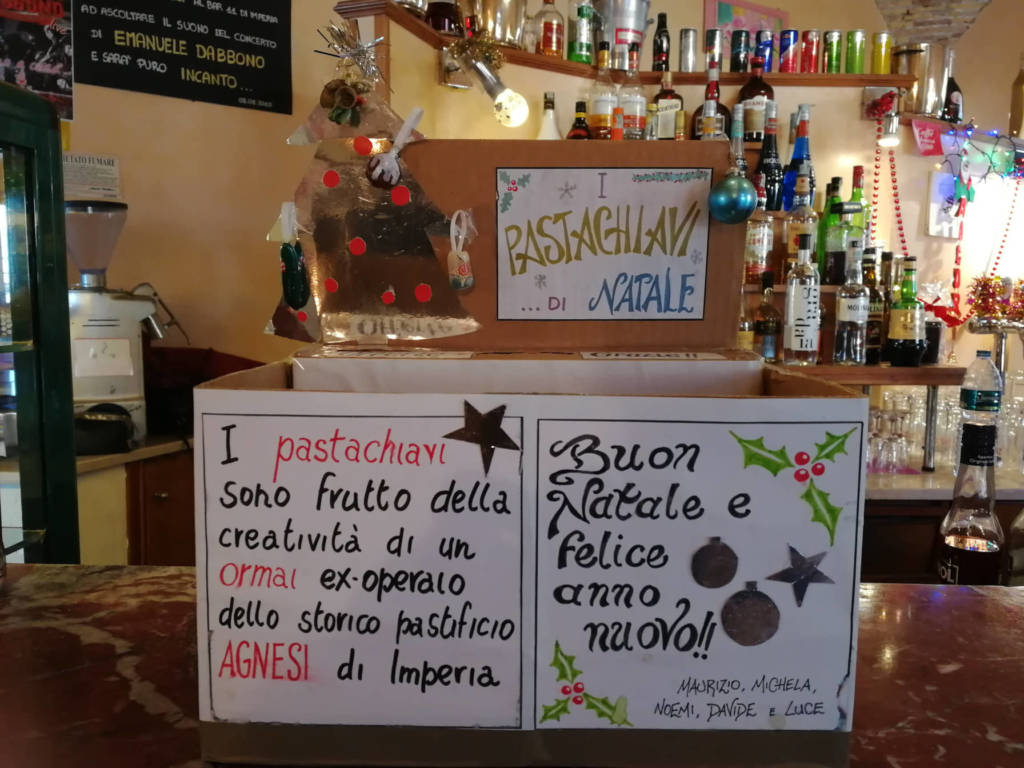 AL BAR 11 DI IMPERIA
AD ASCOLTARE IL SUONO DEL CONCERTO
DI EMANUELE DABBONO
E SARA' PURO INCANTO...
I
PASTACHIAVI
...DI NATALE
Grazie!!
I pastachiavi
sono frutto della
creatività di un
ormai ex-operaio
dello storico pastificio
AGNESI di Imperia
Buon
Natale e
felice
anno
nuovo!!
MAURIZIO, MICHELA,
NOEMI, DAVIDE E LUCE